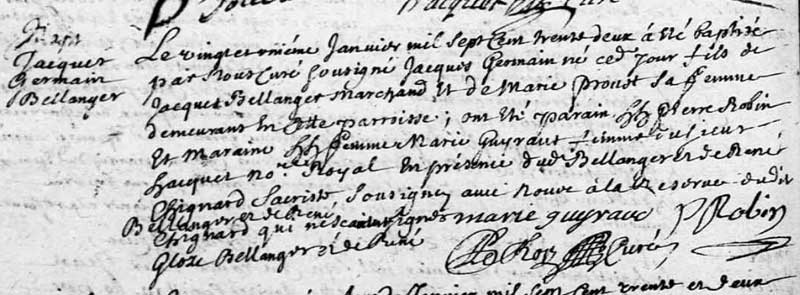 Jacques
Germain
Bellanger
Le vingt et uniéme Janvier mil sept Cent trente deux à été baptisé
par Nous Curé sousigné Jacques Germain né ced. jour fils de
Jacques Bellanger Marchand Et de Marie Proust sa femme
demeurant En cette parroisse; ont été parain Pierre Robin
Et Maraine femme Marie Guyraut femme du sieur
Jacques no.re Royal En présence dud. Bellanger et de René
Chignard Sacriste, sousignez avec Nous à la Reserve dudit
Bellanger et de René
Chignard qui ne sçavent signer marie guyraut P Robin
Gloze Bellanger et de René
Curé
Janvier mil sept Cent trente et deux